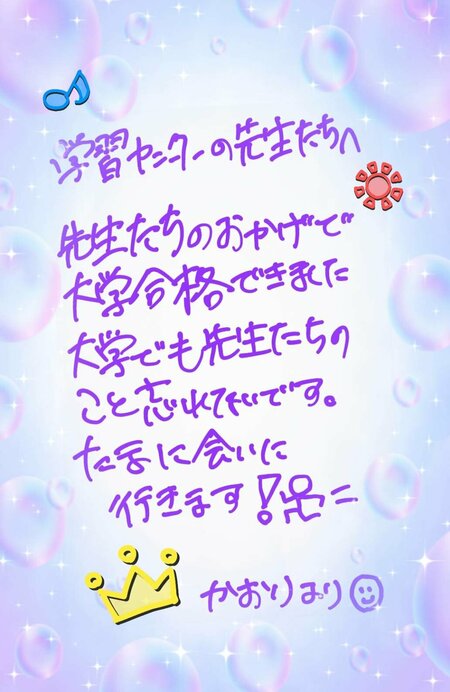 学習センターの先生たちへ
先生たちのおかげで
大学合格できました
大学でも先生たちの
こと忘れないです。
たまに会いに
行きます!
かおりより